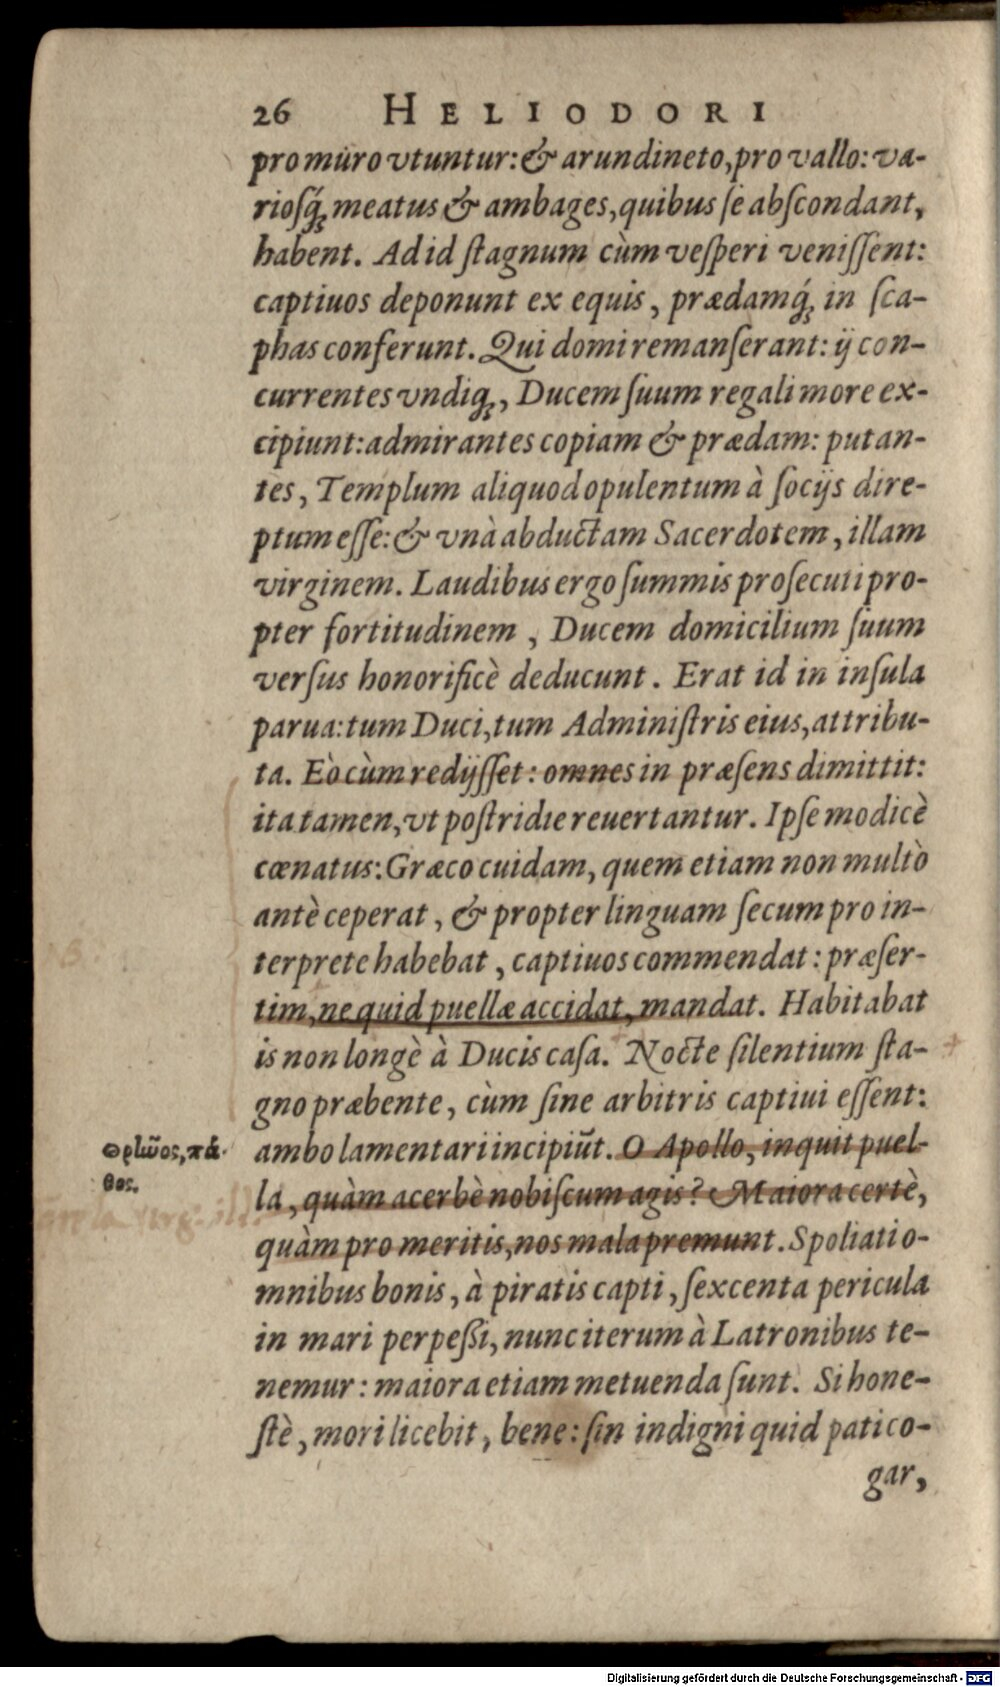 26 HELIODORI
pro muro vtuntur: & arundineto, pro vallo: va-
riosq́; meatus & ambages, quibus se abscondant,
habent. Ad id stagnum cùm vesperi venissent:
captiuos deponunt ex equis, prædamq́; in sca-
phas conferunt. Qui domi remanserant: ij con-
currentes vndiq;, Ducem suum regali more ex-
cipiunt: admirantes copiam & prædam: putan-
tes, Templum aliquod opulentum à socijs dire-
ptum esse: & vnà abductam Sacerdotem, illam
virginem. Laudibus ergo summis prosecuti pro-
pter fortitudinem, Ducem domicilium suum
versus honorificè deducunt. Erat id in insula
parua: tum Duci, tum Administris eius, attribu-
ta. Eò cùm redijsset: omnes in præsens dimittit:
ita tamen, vt postridie reuertantur. Ipse modicè
cœnatus: Græco cuidam, quem etiam non multò
antè ceperat, & propter linguam secum pro in-
terprete habebat, captiuos commendat: præser-
tim, ne quid puellæ accidat, mandat. Habitabat
is non longè à Ducis casa. Nocte silentium sta-
gno præbente, cùm sine arbitris captiui essent:
ambo lamentari incipiũt. O Apollo, inquit puel-
la, quàm acerbè nobiscum agis? Maiora certè,
quàm pro meritis, nos mala premunt. Spoliati o-
mnibus bonis, à piratis capti, sexcenta pericula
in mari perpeßi, nunc iterum à Latronibus te-
nemur: maiora etiam metuenda sunt. Si hone-
stè, mori licebit, bene: sin indigni quid pati co-
gar,
θρῆνος, πά-
θος.
Digitalisierung gefördert durch die Deutsche Forschungsgemeinschaft - DFG